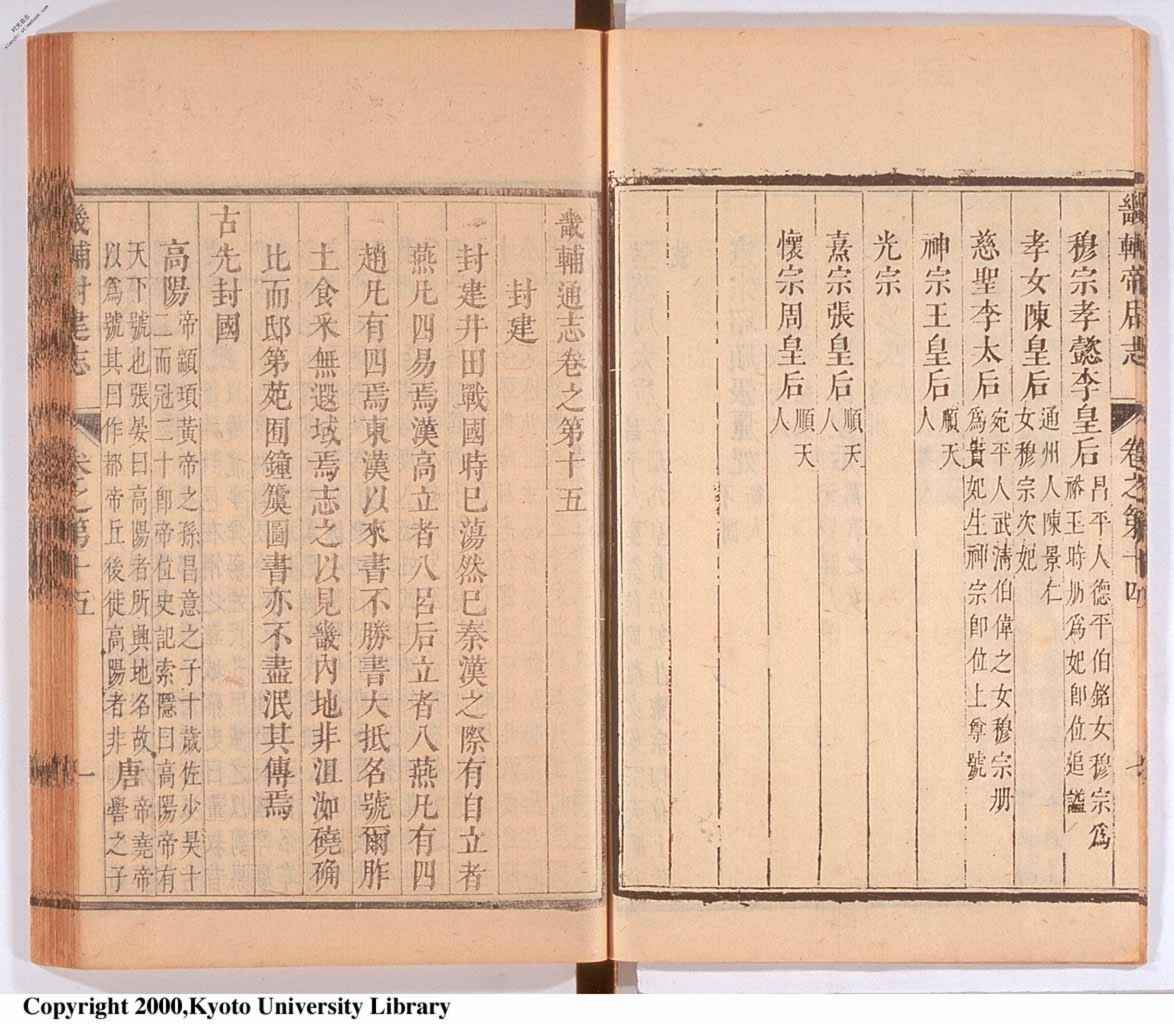 畿輔帝后志
卷之第十四
穆宗孝懿李皇后昌平人德平伯銘女穆宗爲
裕王時册爲妃卽位追諡
孝女陳皇后通州人陳景仁
女穆宗次妃
慈聖李太后宛平人武清伯偉之女穆宗册
爲貴妃生神宗卽位上尊號
神宗王皇后順天
人
光宗
熹宗張皇后順天
人
懷宗周皇后順天
人
畿輔通志卷之第十五
封建
封建井田戰國時已蕩然已秦漢之際有自立者
燕凡四易焉漢高立者八呂后立者八燕凡有四
趙凡有四焉東漢以來書不勝書大抵名號爾胙
土食采無遐域焉志之以見畿內地非沮洳磽确
比而邸第苑囿鐘簴圖書亦不盡泯其傳焉
古先封國
高陽帝顓頊黃帝之孫昌意之子十歲佐少昊十
二而冠二十卽帝位史記索隱曰高陽帝有
天下號也張晏曰高陽者所興地名故
以爲號其曰作都帝丘後徙高陽者非
唐帝堯帝
嚳之子
畿輔封建志
卷之第十五
一
Copyright 2000,Kyoto University Library